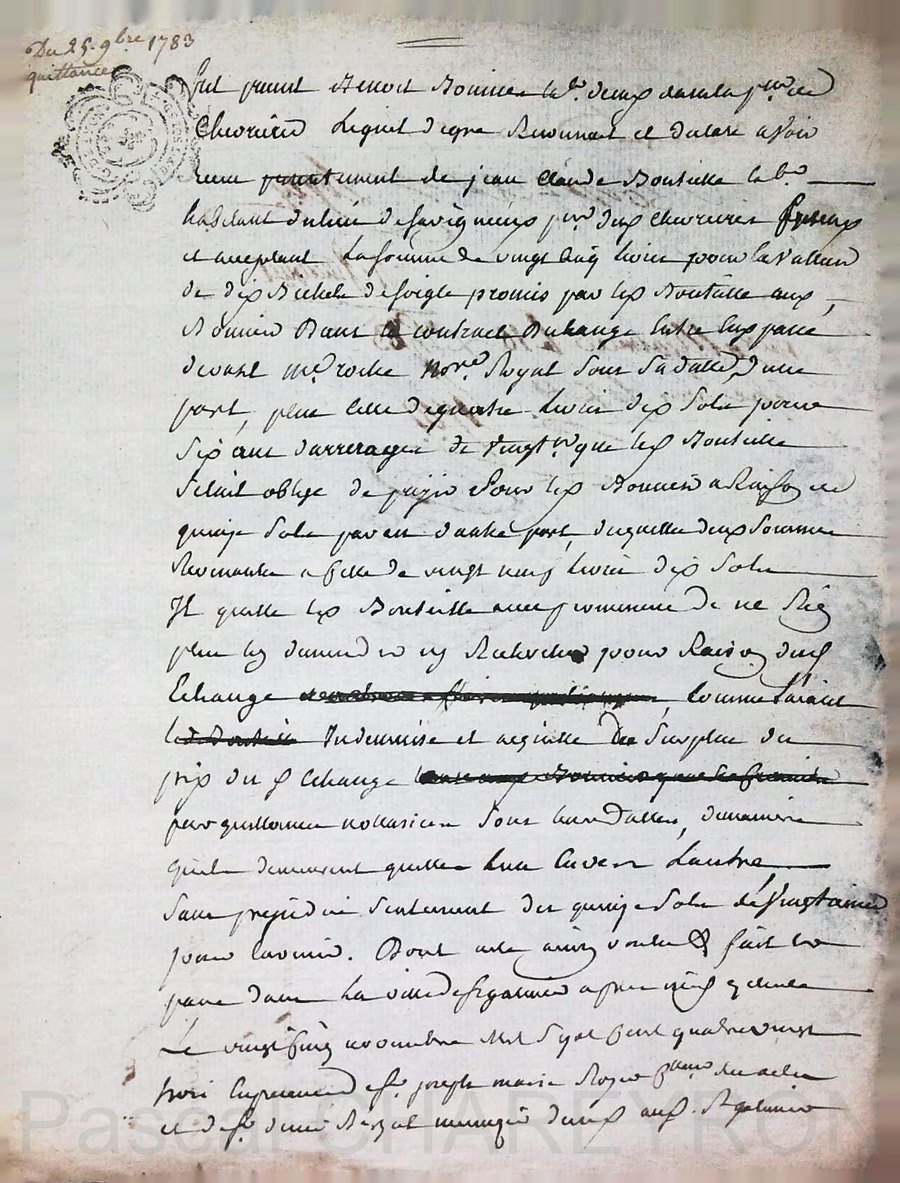 Du 25. 9bre 1783
quittance
fut present Benoit Bonnier labr demt dans la psse de
Chevrières Lequel de gré Reconnait et declare avoir
reçu presentement de jean Claude Bouteille labr
habitant du lieu de psse dud Chevrieres present
et acceptant La somme de vingt cinq livres pour la valleur
de dix Bichets de seigle promis par led Bouteille aud
Bonnier Dans le contract Dechange Entre Eux passé
devant me roche Nore Royal sous sa datte, d'une
part, plus celle de quatre livres dix sols pour
six ans d'arrerages de vingtn que led Bouteille
s'etait obligé de payer pour led Bonnier a Raison de
quinze sols par an d'autre part, desquelles deux sommes
Revenantes a celle de vingt neuf livres dix sols
Il quitte led Bouteille avec promesse de ne Rien
plus luy demander ny Rechercher pour Raison dud
Echange, comme
Indemnise et acquitté Du Surplus du
prix du d Echange
par quittances nottariées sous leurs dattes, de maniere
qu'ils demeurent quittes l'un Envers L'autre
Sans prejudice seulement des quinze sols de vingtaine
pour l'avenir. Dont acte ainsy voulu & fait et
passé dans La ville de st galmier apres midy
Le vingt cinq novembre Mil Sept Cent quatre vingt
trois En presence de sr joseph marie
et de sr aud. St galmier
Pascal CHAREYRON